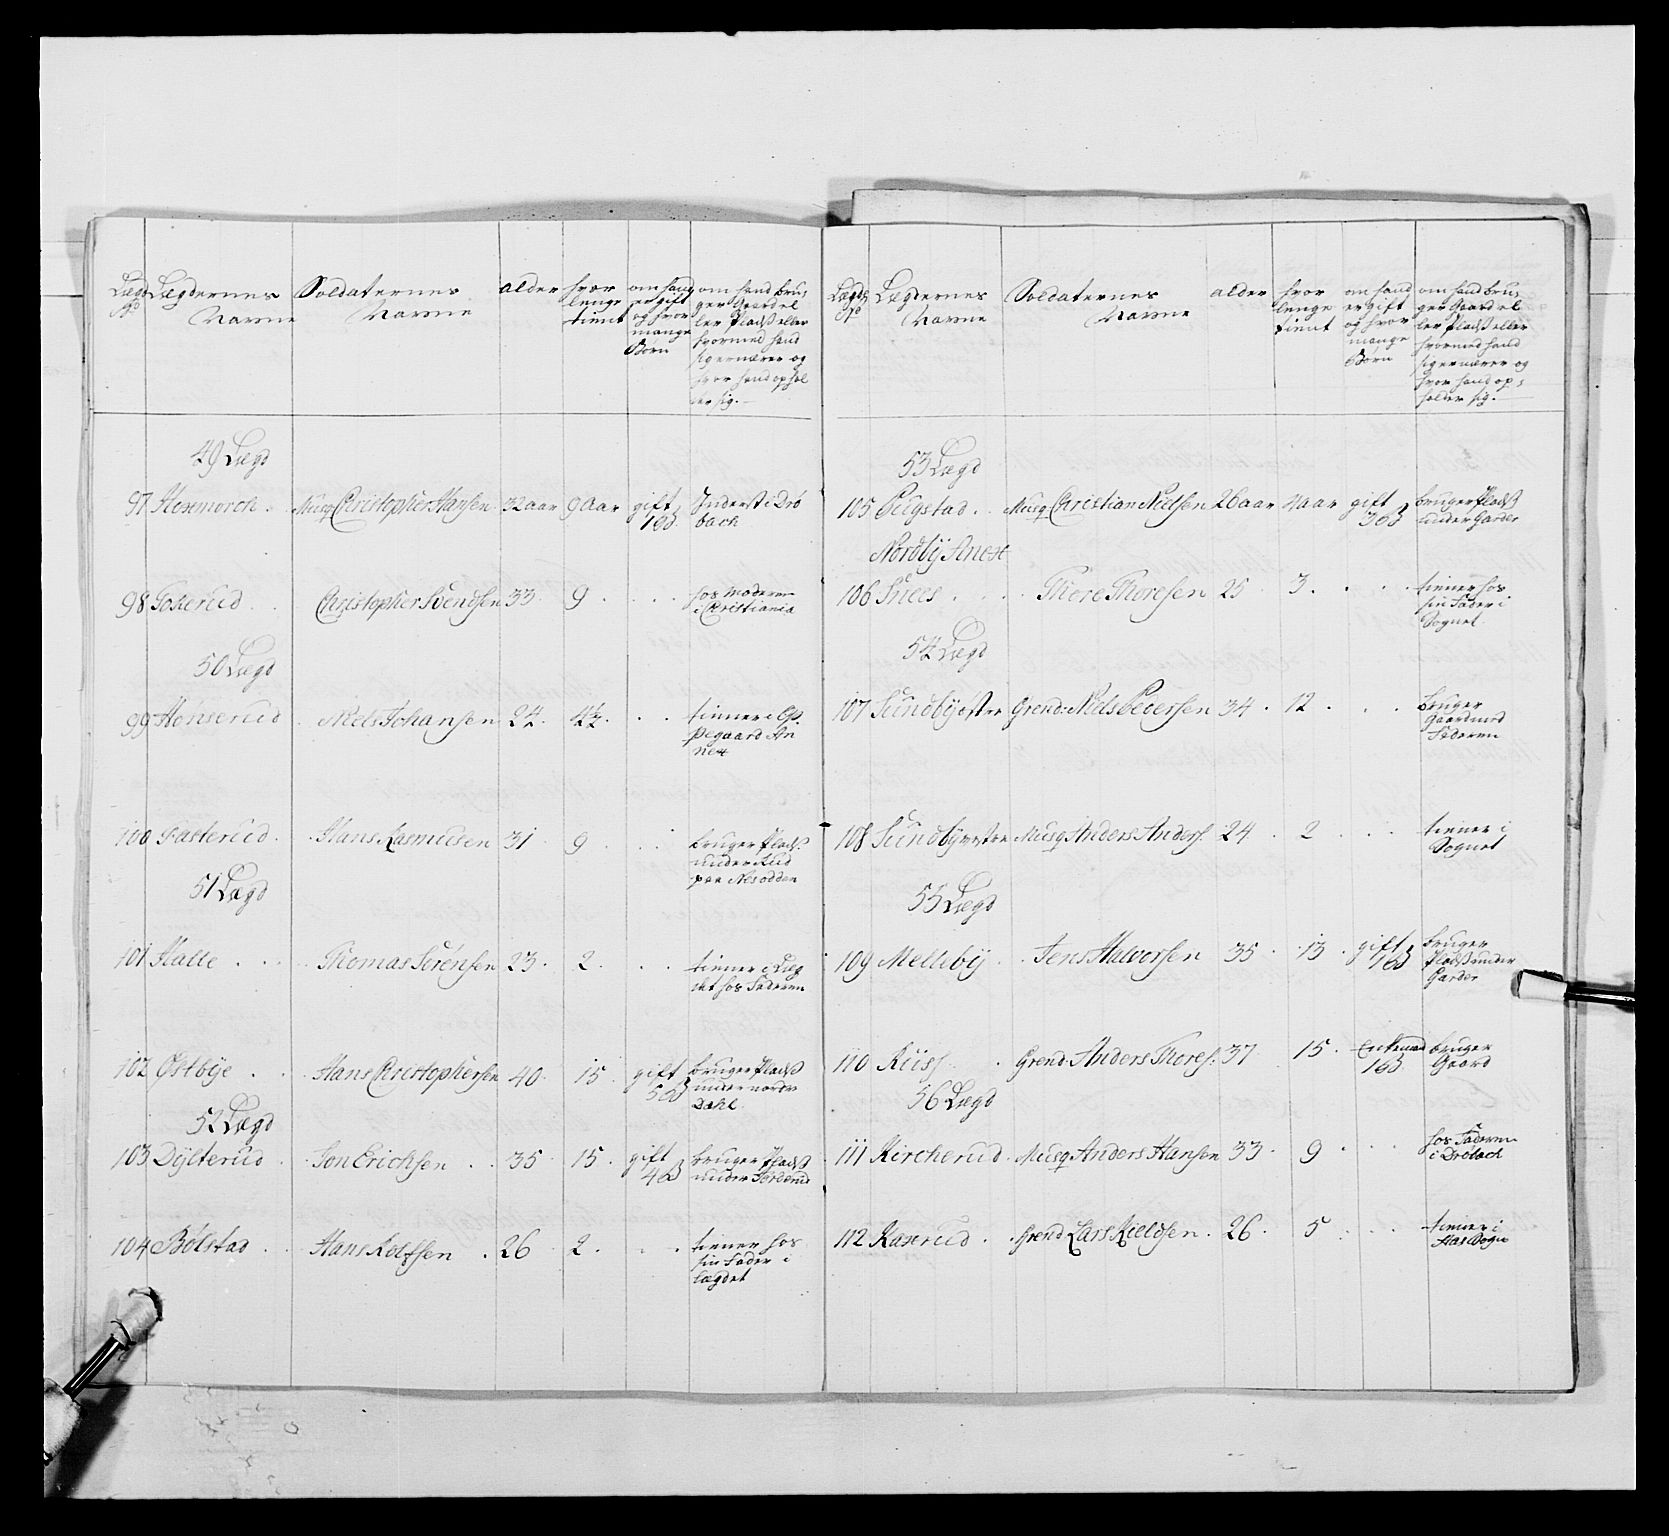 Lægd No
Lægdernes Navne
Soldaternes Navne
alder
hvor lenge tient
om hand er gift og hvor mange Børn
om hand bruger Gaard eller Pladß eller hvormed hand sig ernærer og hvor hand opholder sig.
49 Lægd
97 Houmorch . Musq Christopher Hansen 32 aar 9 aar gift 1 B Inderst i Dröbach
98 Toserud . . Christopher Svendsen 33 9 . . . hos Moderen i Christiania
50 Lægd
99 Hohserud . Niels Johansen 24 . 4½ . . . tienner i Oppegaard Annex
100 Fasterud . Hans Rasmusen 31 9 . . . bruger Pladß under Rud paa Nesodden
51 Lægd
101 Halle . . . Thomas Sörensen 23 . 2 . . . tienner i Lægdet hos Faderen
102 Østbye . . Hans Christophersen 40 . 15 . gift 5 B bruger Pladß under nordre Dahl
52 Lægd
103 Dÿlterud . Jon Erichsen . . 35 . 15 . gift 4 B bruger Pladß under
104 Bølstad . . Hans Rolfsen . 26 . 2 . . . tienner hos sin Fader i Lægdet
Lægds No
Lægdernes Navne
Soldaternes Navne
alder
hvor lenge tient
om hand er gift og hvor mange Børn
om hand bruger Gaard eller Pladß eller hvormed hand sig ernærer og hvor hand opholder sig.
53 Lægd
105 Pugstad . . Musq Christian Nielsen 26 aar 4 aar gift 3 B bruger Pladß under Garder
Nordbÿ Anex
106 Snees . . . Thore Thoresen 25 . 3 . . . tienner hos sin Fader i Sognet
54 Lægd
107 Sundbÿ østre Grend: Niels Pedersen 34 . 12 . . . bruger Gaard med Faderen
108 Sundbÿ vestre Musq Anders Anders: 24 . 2 . . . tienner i Sognet
55 Lægd
109 Mellebÿ . Jens Halvorsen 35 . 13 . gift 1 B bruger Pladß under Garder
110 Riis . Grend: Anders Thores: 37 15 . Enkemand 1 B bruger Gaard
56 Lægd
111 Kircherud . Musq Anders Hansen 33 . 9 . . . hos Faderen i Dröbach
112 Kaxrud . . Grend Lars Kieldsen . 26 . 5 . . . tienner i Aas Sogn